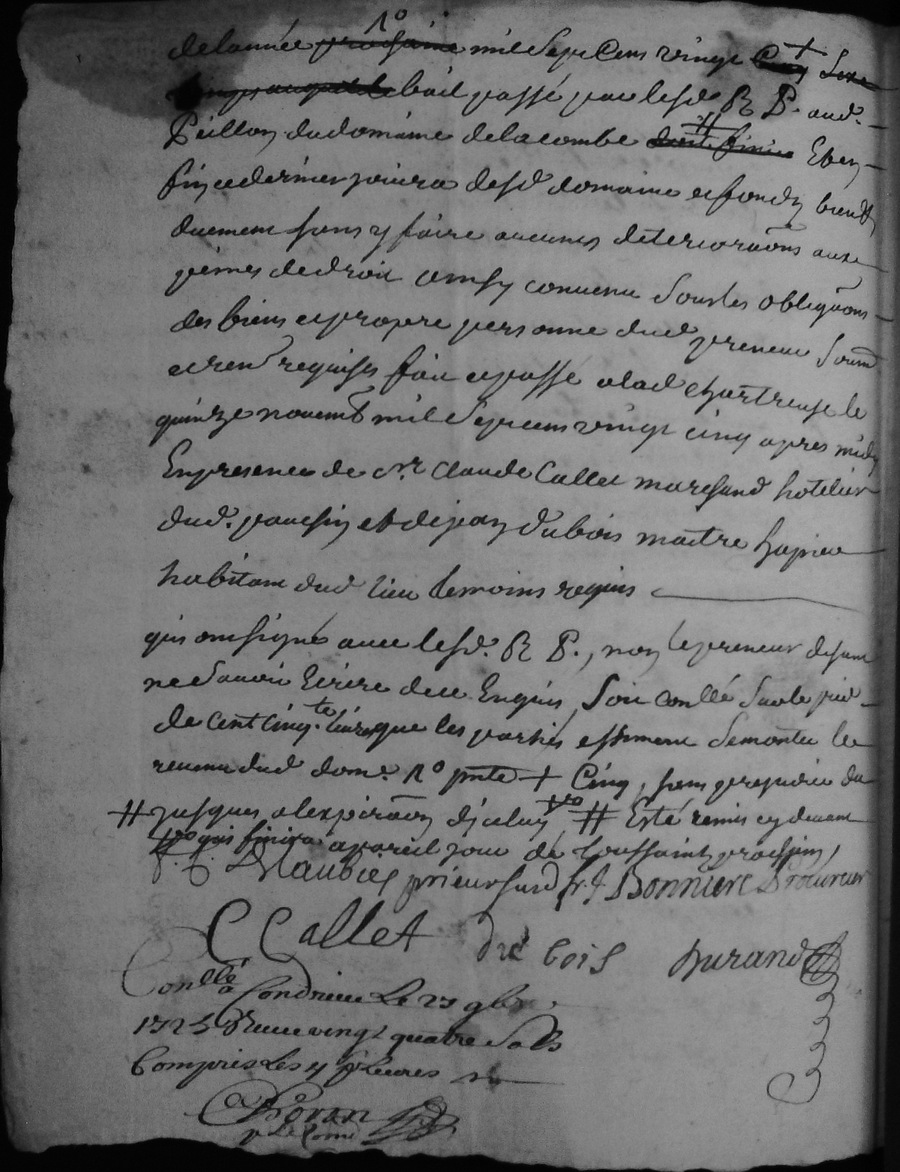 n°
de lannée prochaine mil sept cens vingt cinq +
bail passé par lesd. R P. aud.
Peillon du domaine de la combe # Et en
fin ce dernier jouira desd domaine et fonds bien et
duement sans y faire aucunes deteriorãons aux
peines de droit ainsy convenu sous les obligãons
des biens et propre personne dud preneur soum
et renõn requises fait et passé a lad chartreuse le
quinze novemb mil sept cens vingt cinq apres midy
En presence de sr. Claude Callet marchand hotelier
dud. et de jean Dubois maitre
habitant dud lieu temoins requis
qui ont signé avec lesd. R P., non le preneur disant
ne savoir Ecrire de ce Enquis, soit conllé sur le pied
de cent cinq.te livres que les parties estiment se monter le
revenu dud dom.e n° + Cinq, sans prejudice du
# jusques a lexpirãon dicelluy # Esté remis cy devant
qui finira a pareil jour de toussaints prochain,
prieur susd fr J Bonniere Procureur
C Callet du bois Durand
Conllé a Condrieu Le 27 9bre
1725 Receu vingt quatre sols
Compris Les